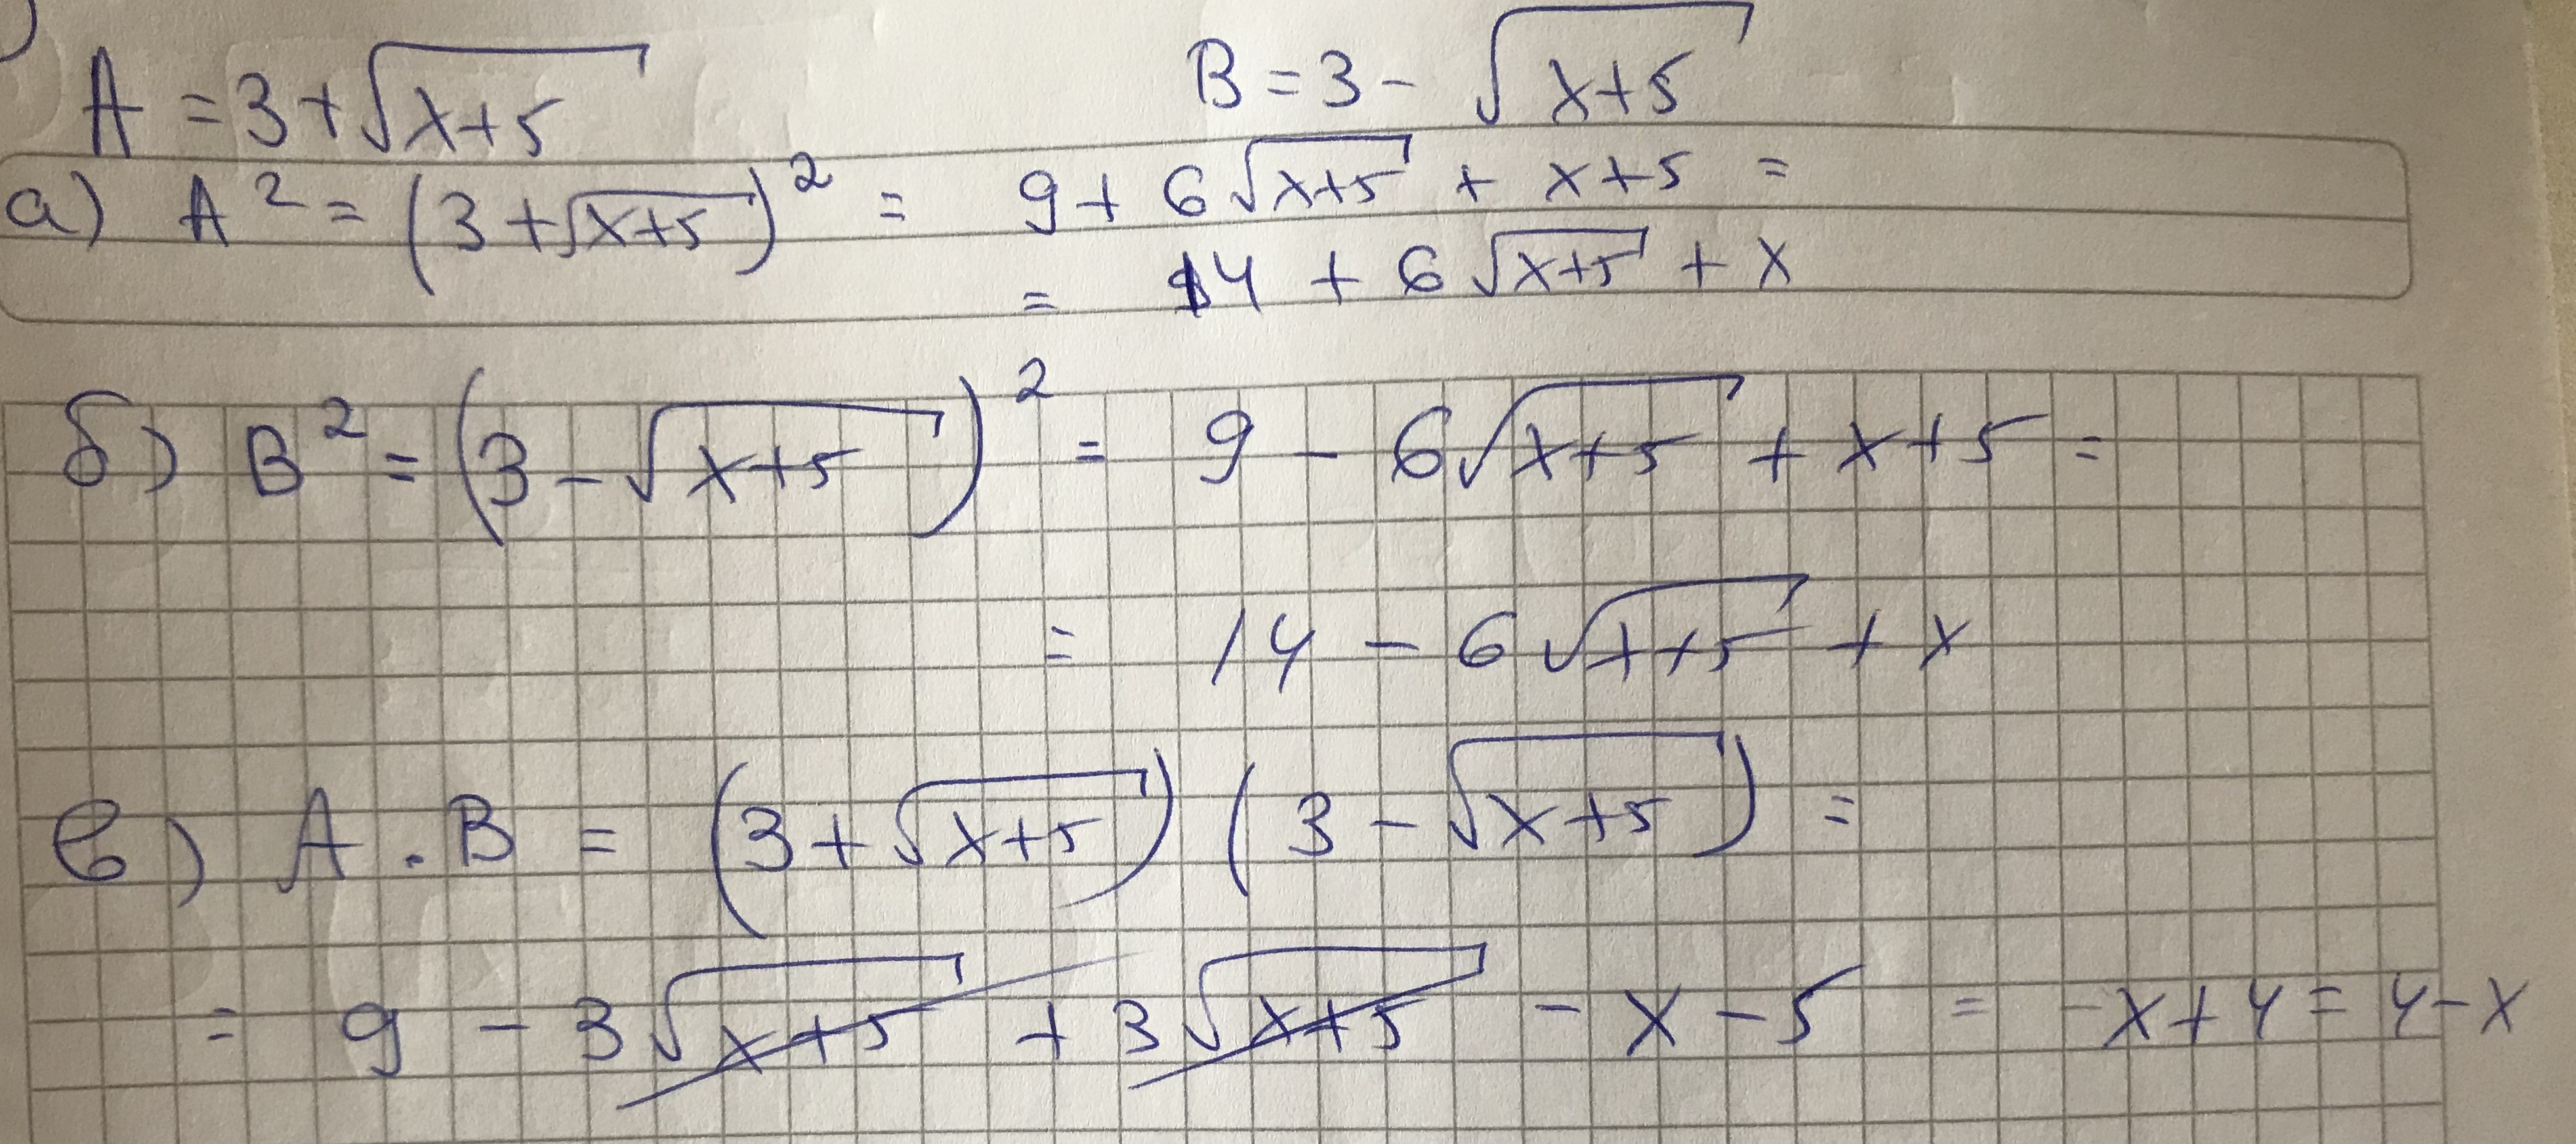 A = 3 + √(x+5)  B = 3 - √(x+5)
а) A² = (3 + √(x+5))² = 9 + 6√(x+5) + x+5 =
= 14 + 6√(x+5) + x
б) B² = (3 - √(x+5))² = 9 - 6√(x+5) + x+5 =
= 14 - 6√(x+5) + x
в) A · B = (3 + √(x+5)) (3 - √(x+5)) =
= 9 - 3√(x+5) + 3√(x+5) - x - 5 = -x+4 = 4-x